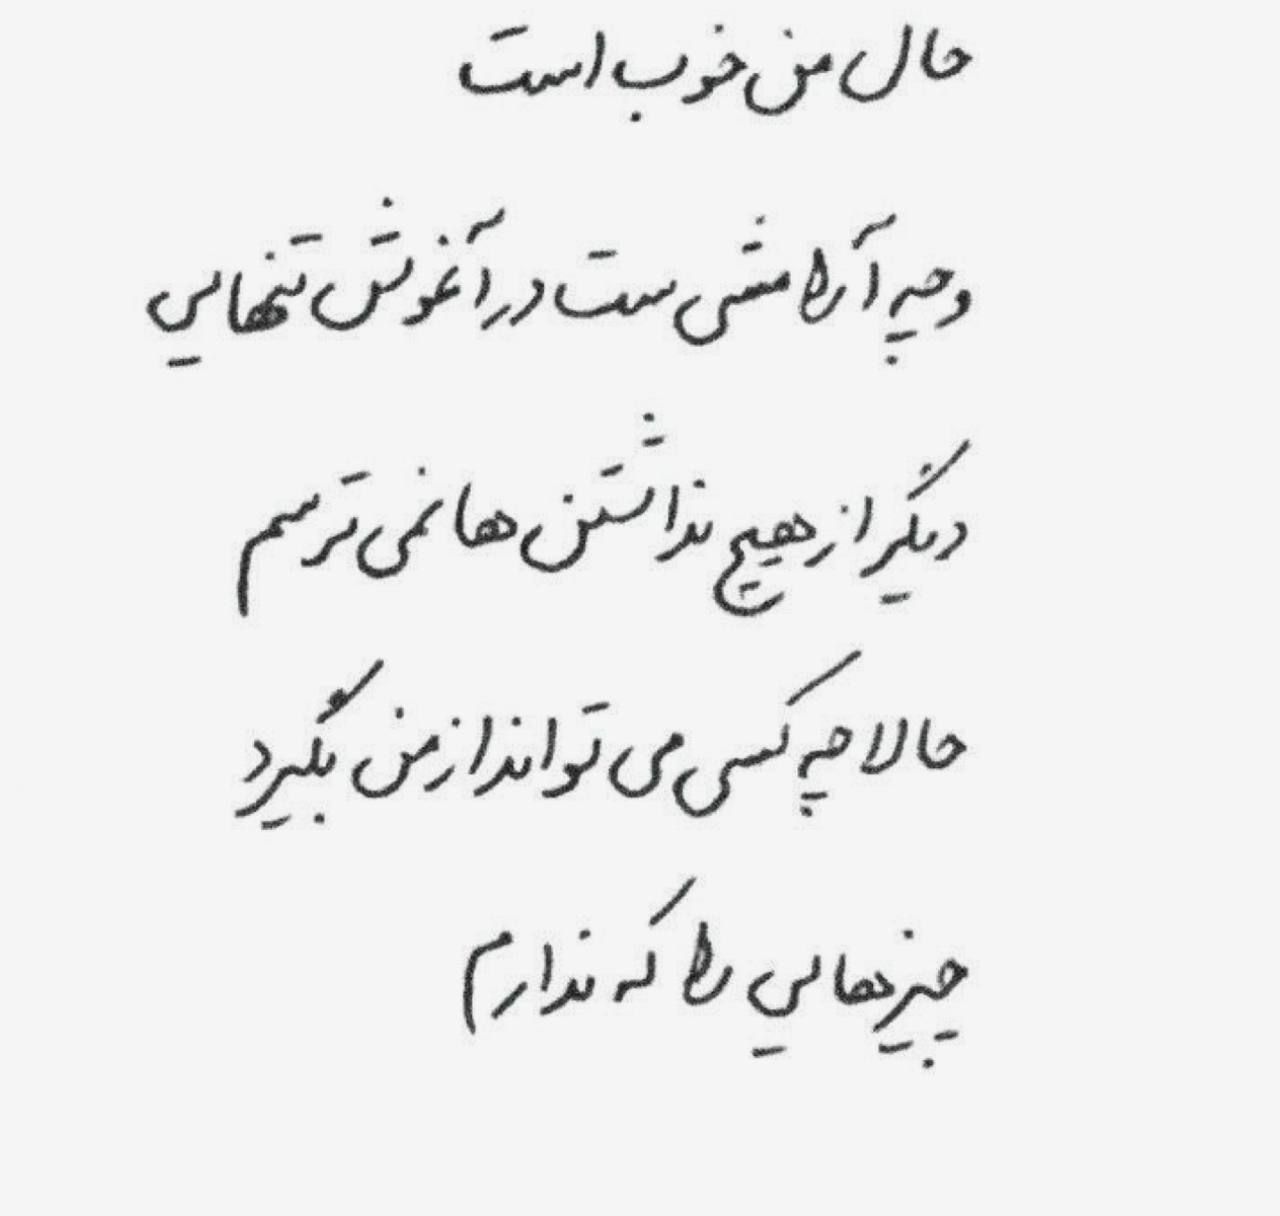 حال من خوب است
و چه آرامشی ست در آغوش تنهایی
دیگر از هیچ نداشتن ها نمی ترسم
حالا چه کسی می تواند از من بگیرد
چیزهایی را که ندارم